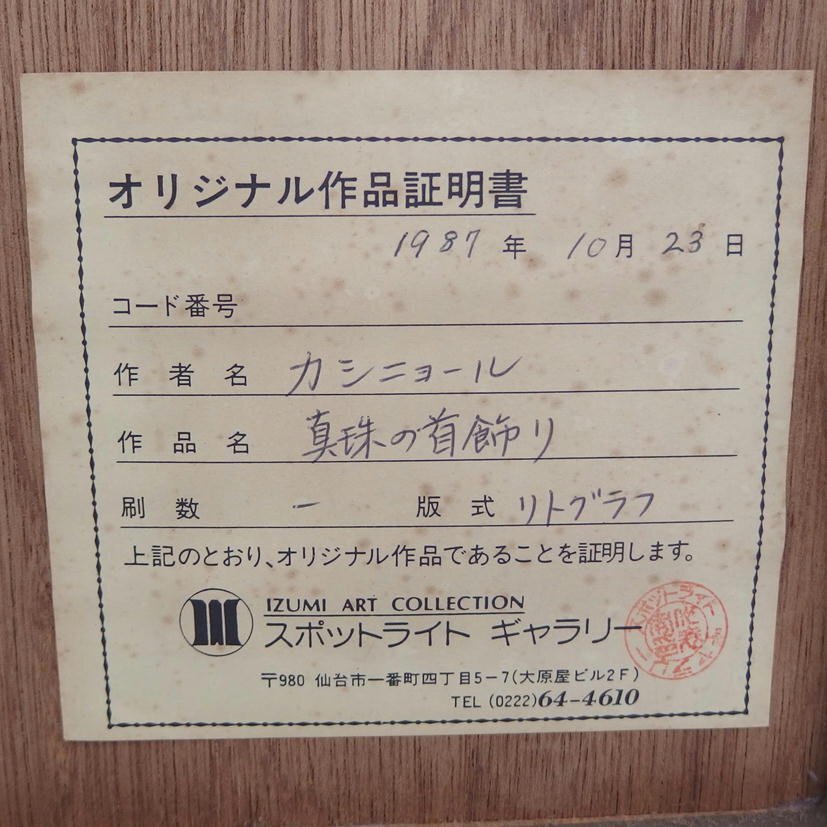 オリジナル作品証明書
1987年 10月 23日
コード番号
作者名 カシニョール
作品名 真珠の首飾り
刷数 ー 版式 リトグラフ
上記のとおり、オリジナル作品であることを証明します。
IZUMI ART COLLECTION
スポットライト ギャラリー
〒980 仙台市一番町四丁目5-7(大原屋ビル2F)
TEL (0222)64-4610
スポットライト